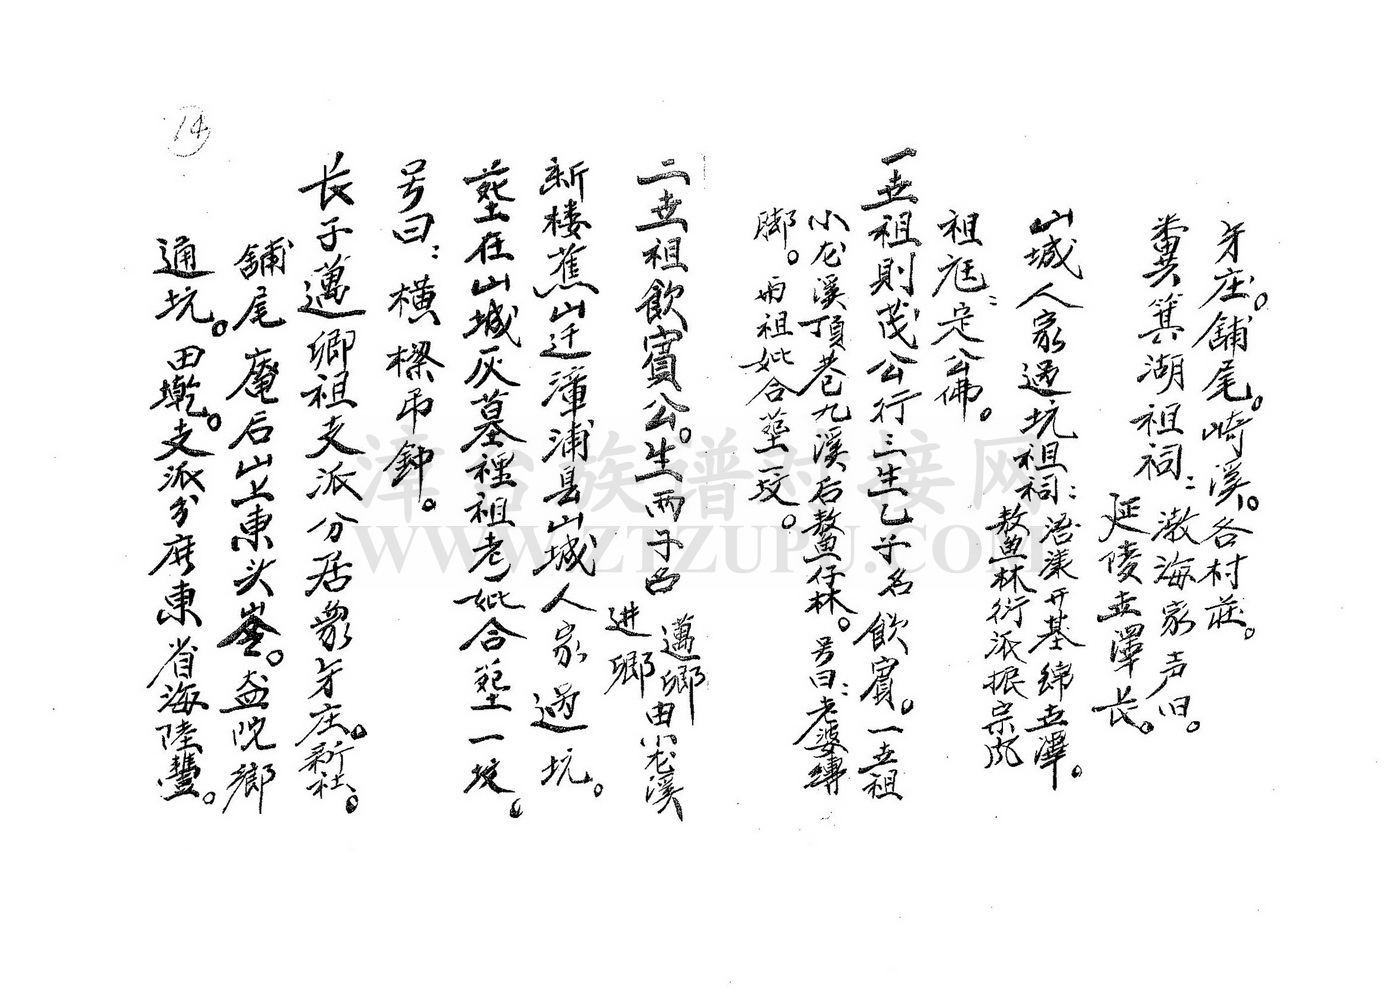 牙庄。舖尾。崎溪。各村莊。
糞箕湖祖祠：渤海家声旧。
延陵世澤長。
山城人家過坑祖祠：浯漾開基綿世澤。
鰲林衍派振宗風
祖厝：定公佛。
一世祖則茂公行三生乙子名飲賓。一世祖
小龙溪頂巷九溪后鰲仔林。号曰：老婆縛
脚。両祖妣合塟一坟。
二世祖飲賓公。生両子名邁鄉進鄉由小龙溪
新楼蕉山迁漳浦县山城人家過坑。
塟在山城灰墓祖老妣合塟一坟。
号曰：橫樑吊鈡。
長子邁鄉祖支派分居牙庄。新社。
舖尾庵后山上東头崟。院鄉
通坑。田墘。支派分廣東省海陸豐。
14
漳台族谱对接网
WWW.ZTZUPU.COM